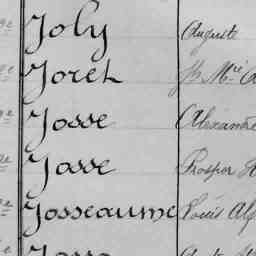 Joly Auguste
Joret Jh Mie
Josse Alexandre
Josse Prosper
Josseaume Louis
Josse